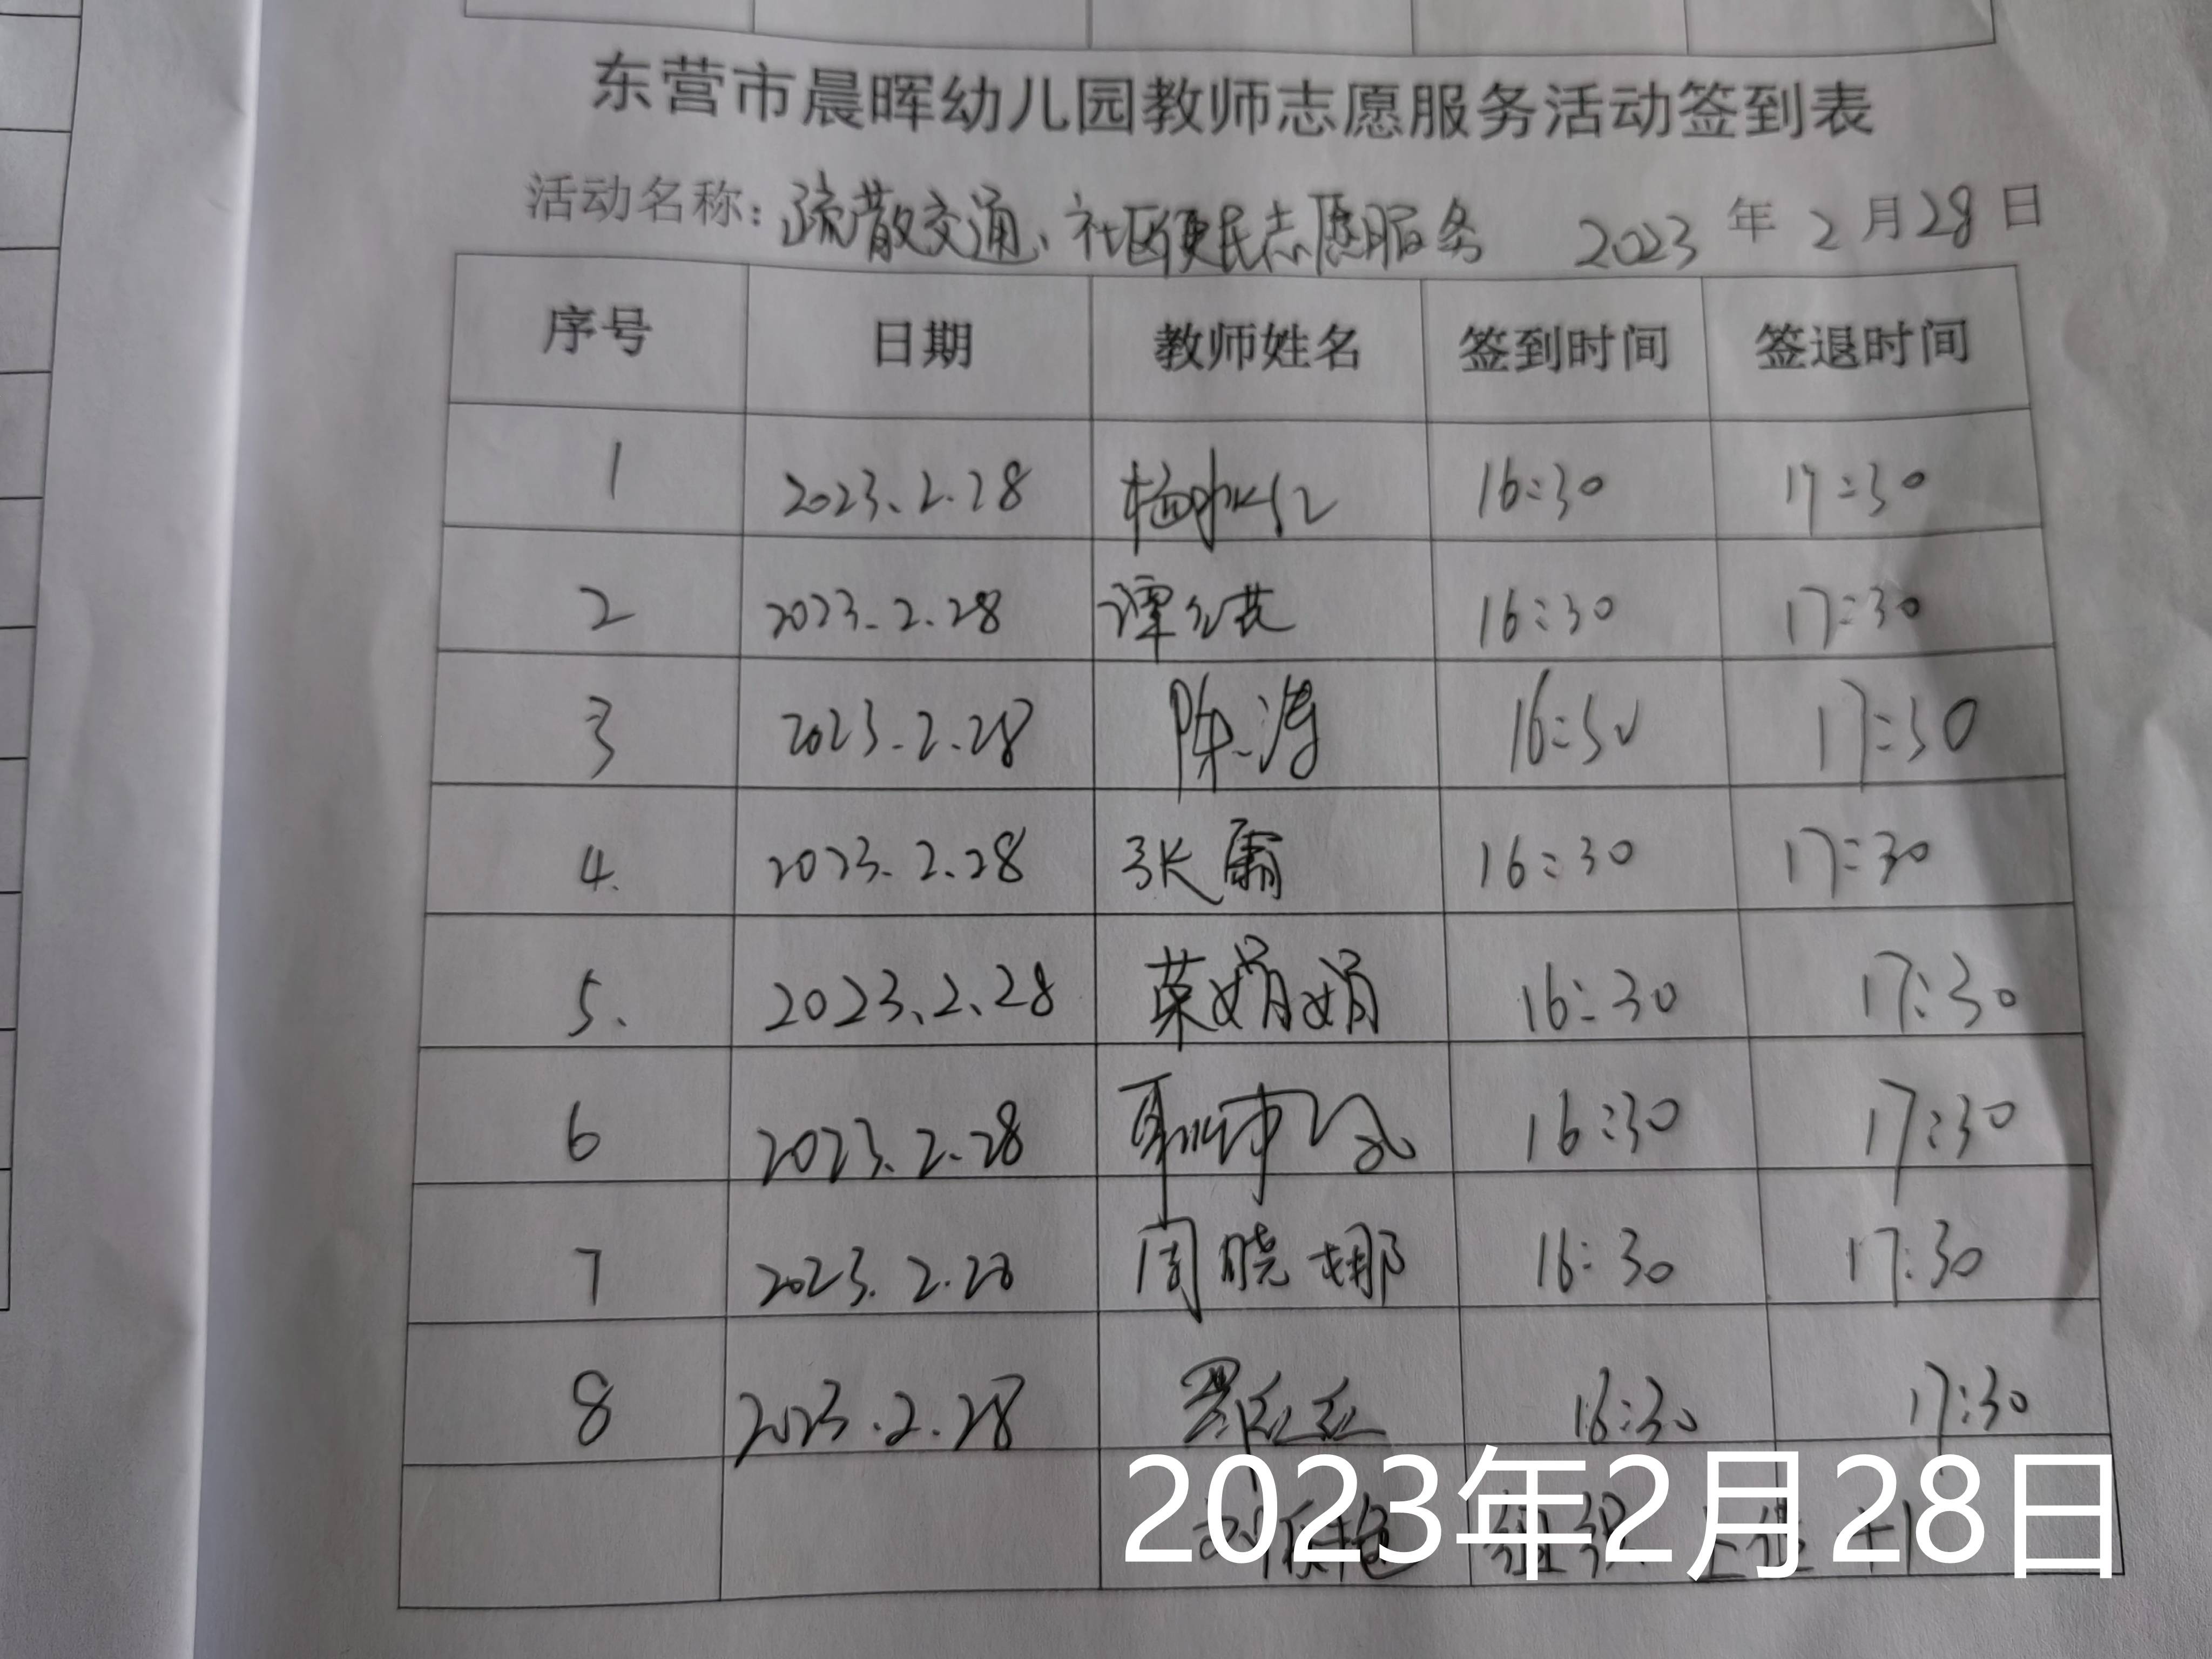 东营市晨晖幼儿园教师志愿服务活动签到表
活动名称：疏散交通、社区便民志愿服务 2023 年 2 月 28 日
序号 日期 教师姓名 签到时间 签退时间
1 2023.2.28 16:30 17:30
2 2023.2.28 谭 16:30 17:30
3 2023.2.28 陈涛 16:30 17:30
4. 2023.2.28 张霜 16:30 17:30
5. 2023.2.28 荣娟娟 16:30 17:30
6 2023.2.28 16:30 17:30
7 2023.2.28 周晓娜 16:30 17:30
8 2023.2.28 16:30 17:30
组织 上传 +1
2023年2月28日